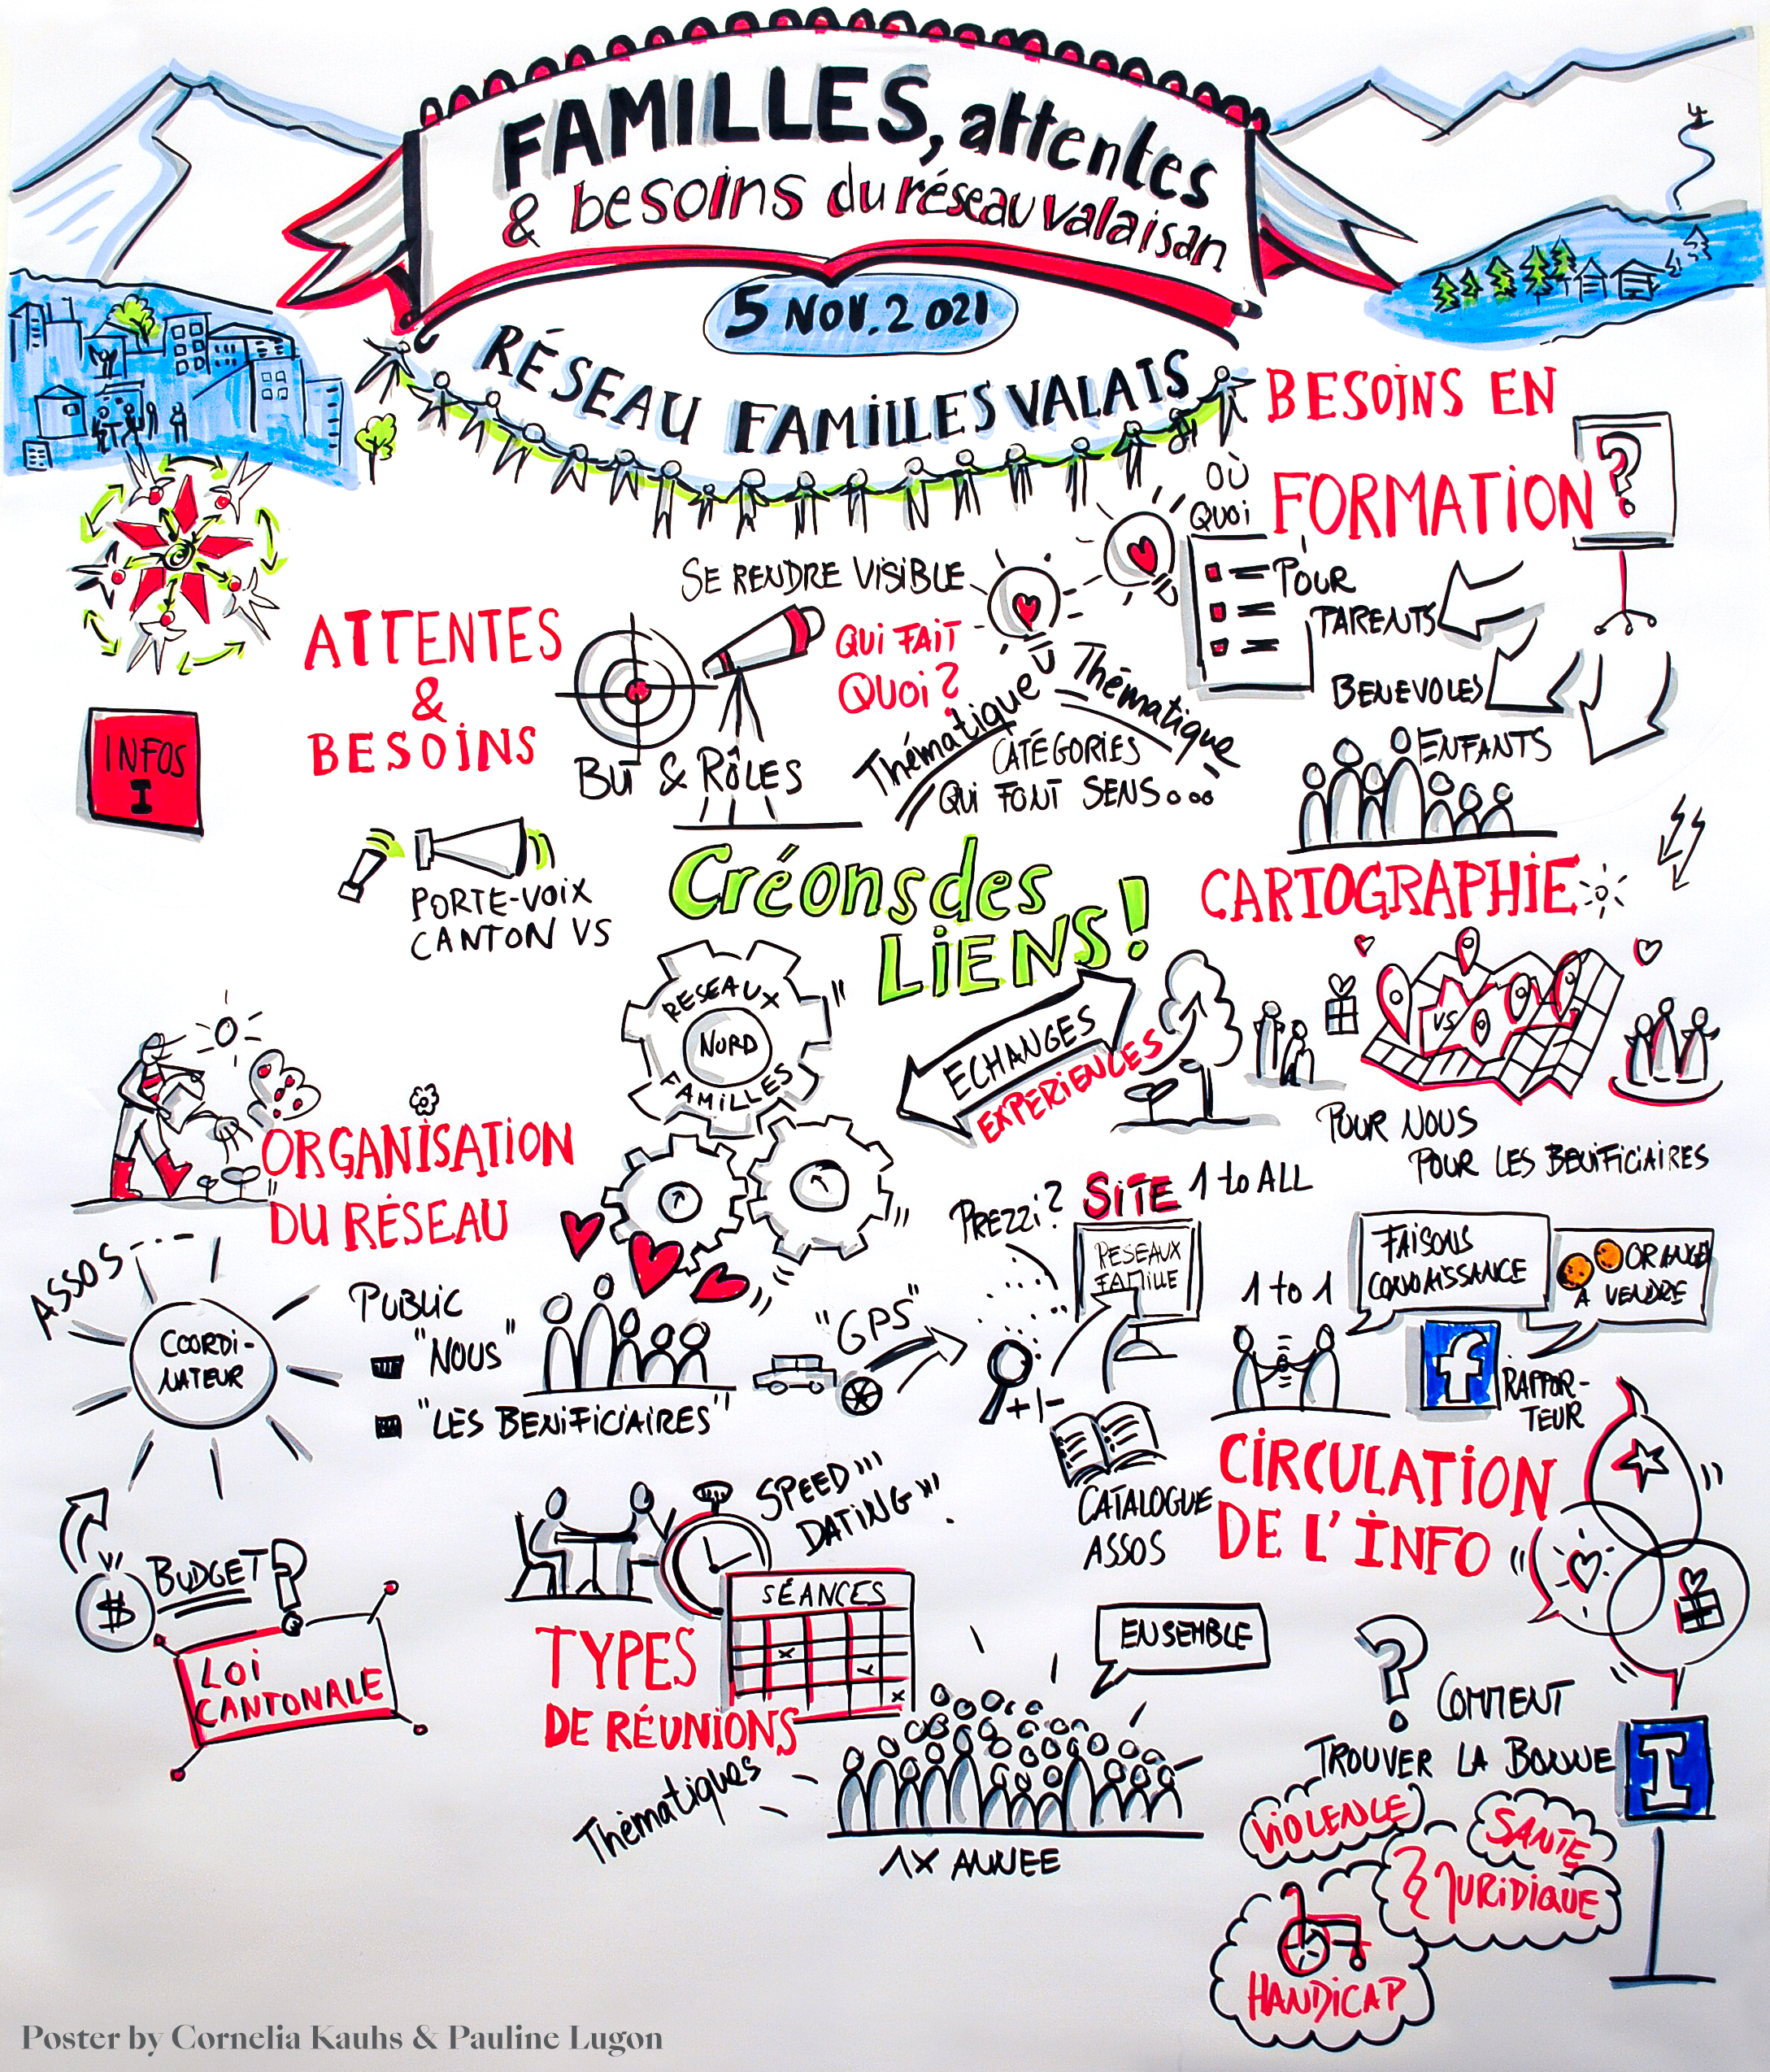 FAMILLES, attentes
& besoins du réseau valaisan
5 NOV. 2021
RÉSEAU FAMILLES VALAIS
BESOINS EN
FORMATION ?
OÙ
QUOI
POUR
PARENTS
BENEVOLES
ENFANTS
ATTENTES
&
BESOINS
SE RENDRE VISIBLE
QUI FAIT
QUOI?
BUT & RÔLES
Thématique
Thématique
CATÉGORIES
QUI FONT SENS...
INFOS
I
PORTE-VOIX
CANTON VS
Créons des
LIENS!
RESEAUX
NORD
FAMILLES
ECHANGES
EXPERIENCES
CARTOGRAPHIE
VS
POUR NOUS
POUR LES BENIFICIAIRES
ORGANISATION
DU RÉSEAU
ASSOS
COORDI-
NATEUR
PUBLIC
"NOUS"
"LES BENIFICIAIRES"
BUDGET?
$
LOI
CANTONALE
"GPS"
PREZZI?
SITE 1 to ALL
RESEAUX
FAMILLE
+/-
CATALOGUE
ASSOS
1 to 1
FAISONS
CONNAISSANCE
ORANGE
A VENDRE
f
RAPPOR-
TEUR
CIRCULATION
DE L'INFO
SPEED
DATING
SÉANCES
TYPES
DE RÉUNIONS
Thématiques
ENSEMBLE
1X ANNEE
?
COMMENT
TROUVER LA BONNE
I
VIOLENCE
SANTE
§ JURIDIQUE
HANDICAP
Poster by Cornelia Kauhs & Pauline Lugon